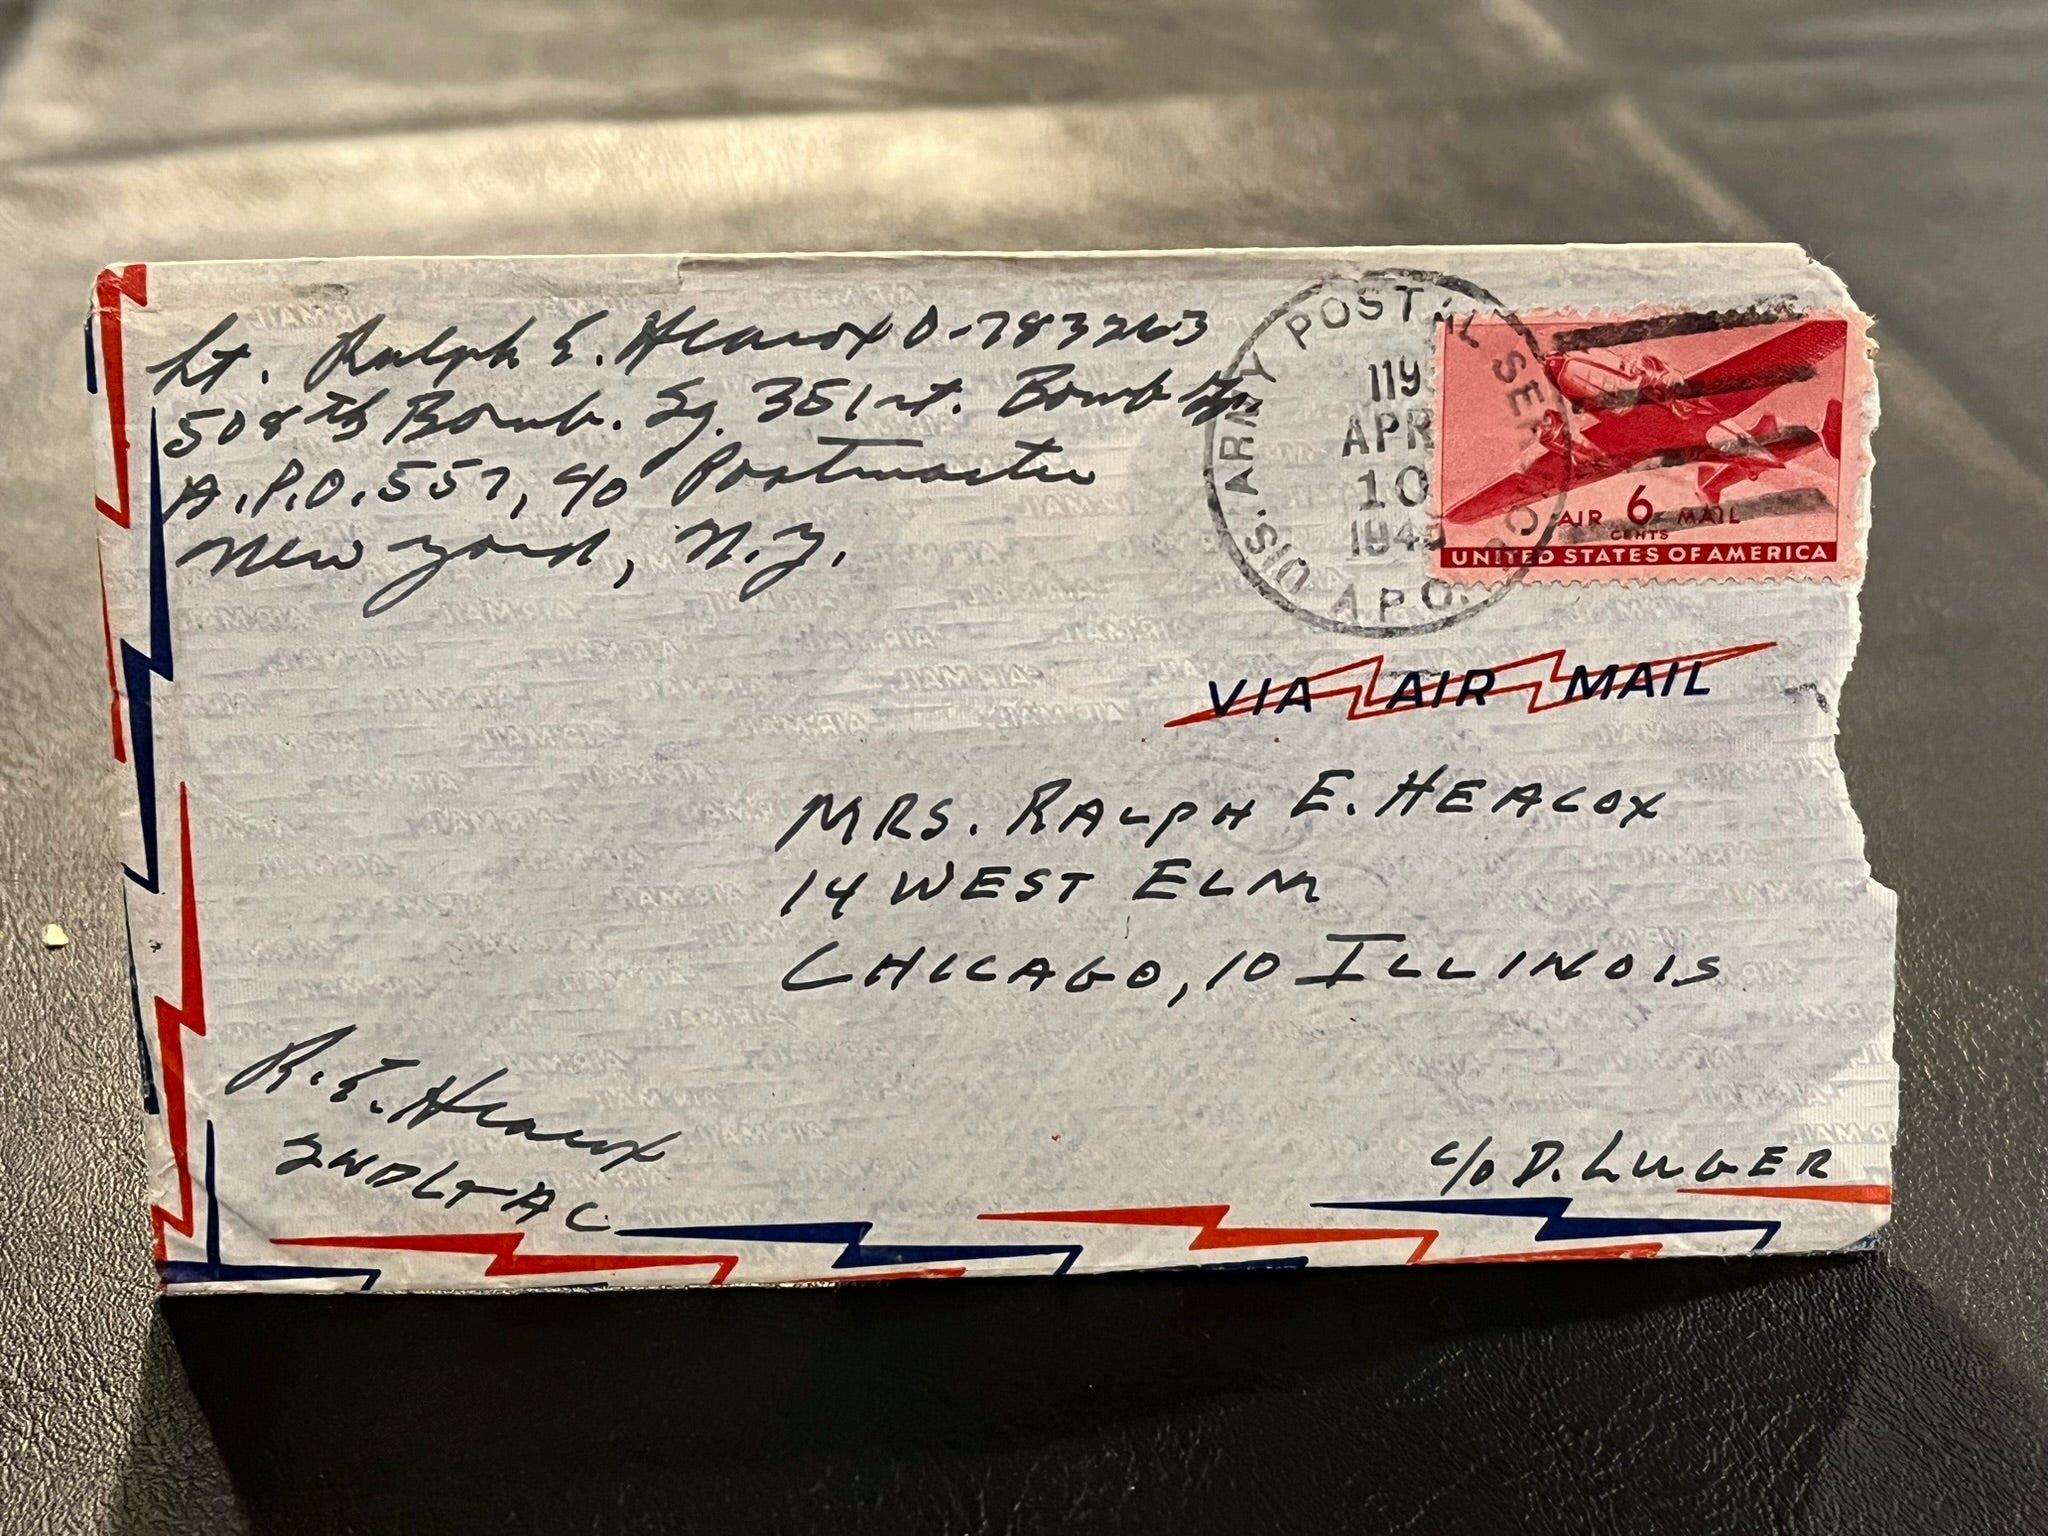 Lt. Ralph E. Heacox O-783263
508th Bomb. Sq. 351st. Bomb Gp.
A.P.O. 557, c/o Postmaster
New York, N.Y.
U.S. ARMY POSTAL SERVICE
119
APR
10
194
A.P.O.
AIR 6 MAIL
CENTS
UNITED STATES OF AMERICA
VIA AIR MAIL
MRS. RALPH E. HEACOX
14 WEST ELM
CHICAGO, 10 ILLINOIS
R. E. Heacox
2ND LT AC
c/o D. LUGER